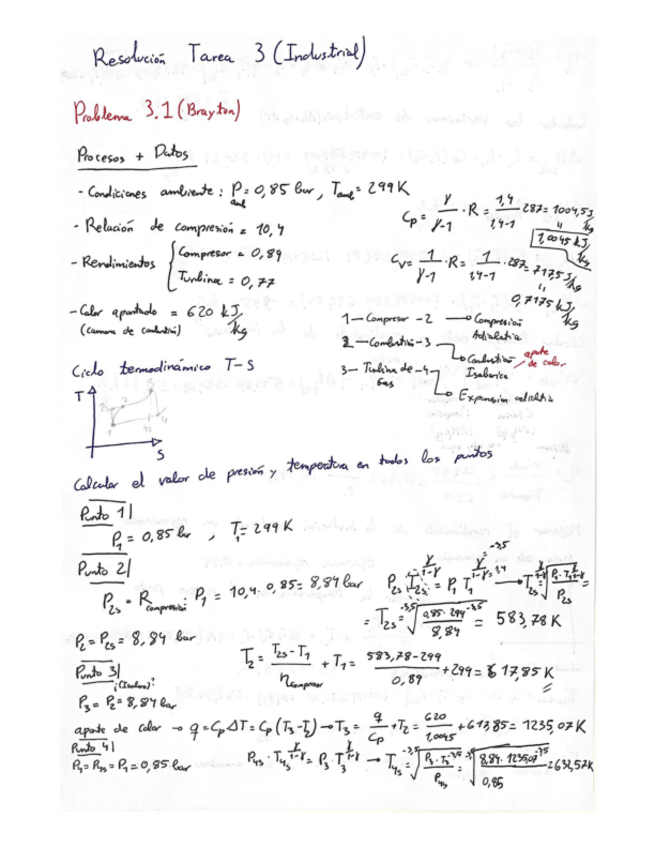 Resolución Tarea 3 (Industrial)
Problema 3.1 (Brayton)
Procesos + Datos
- Condiciones ambiente: P_amb = 0,85 bar, T_amb = 299 K
- Relación de compresión = 10,4
- Rendimientos { Compresor = 0,89
Turbina = 0,77
- Calor aportado = 620 kJ/kg
(camara de combustión)
Cp = γ/(γ-1) · R = 1,4/(1,4-1) · 287 = 1004,5 J/kg
= 1,0045 kJ/kg
Cv = 1/(γ-1) · R = 1/(1,4-1) · 287 = 717,5 J/kg
= 0,7175 kJ/kg
1 — Compresor - 2 → Compresión Adiabática
2 — Combustión - 3 → Combustión Isobarica aporte de calor
3 — Turbina de Gas - 4 → Expansión adiabática
Ciclo termodinámico T-S
T
1 2
S
Calcular el valor de presión y temperatura en todos los puntos
Punto 1|
P1 = 0,85 bar , T1 = 299 K
Punto 2|
P2s = R_compresión · P1 = 10,4 · 0,85 = 8,84 bar
P2s · T2s^(γ/(1-γ)) = P1 T1^(γ/(1-γ)) → T2s = ^(γ/(1-γ))√(P1 · T1^(γ/(1-γ)) / P2s) =
= T2s = ^(-3,5)√(0,85 · 299^(-3,5) / 8,84) = 583,78 K
P2 = P2s = 8,84 bar
T2 = (T2s - T1)/η_compresor + T1 = (583,78 - 299)/0,89 + 299 = 617,85 K
Punto 3|
¿(Isobara)?
P3 = P2 = 8,84 bar
aporte de calor → q = Cp ΔT = Cp (T3 - T2) → T3 = q/Cp + T2 = 620/1,0045 + 617,85 = 1235,07 K
Punto 4|
P4 = P4s = P1 = 0,85 bar
P4s · T4s^(γ/(1-γ)) = P3 · T3^(γ/(1-γ)) → T4s = ^(-3,5)√(P3 · T3^(-3,5) / P4s) = ^(-3,5)√(8,84 · 1235,07^(-3,5) / 0,85) = 632,57 K